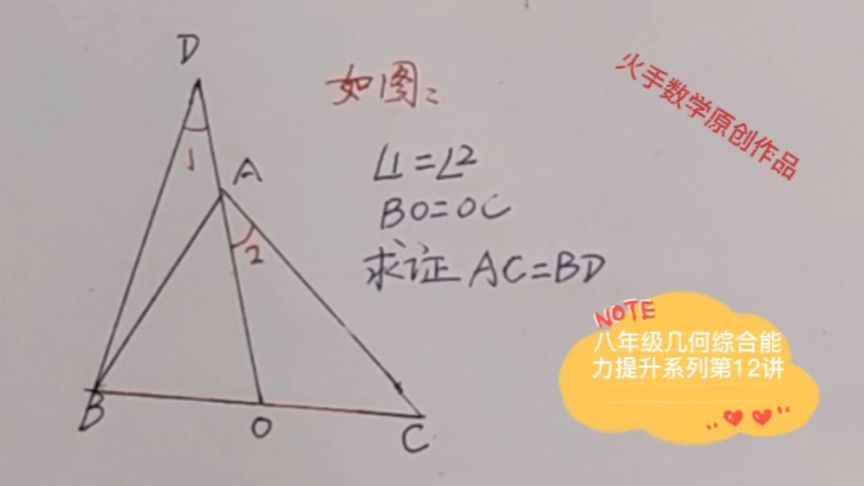 D
如图:
火手数学原创作品
1
A
∠1=∠2
BO=OC
2
求证 AC=BD
NOTE
八年级几何综合能
力提升系列第12讲
B
O
C